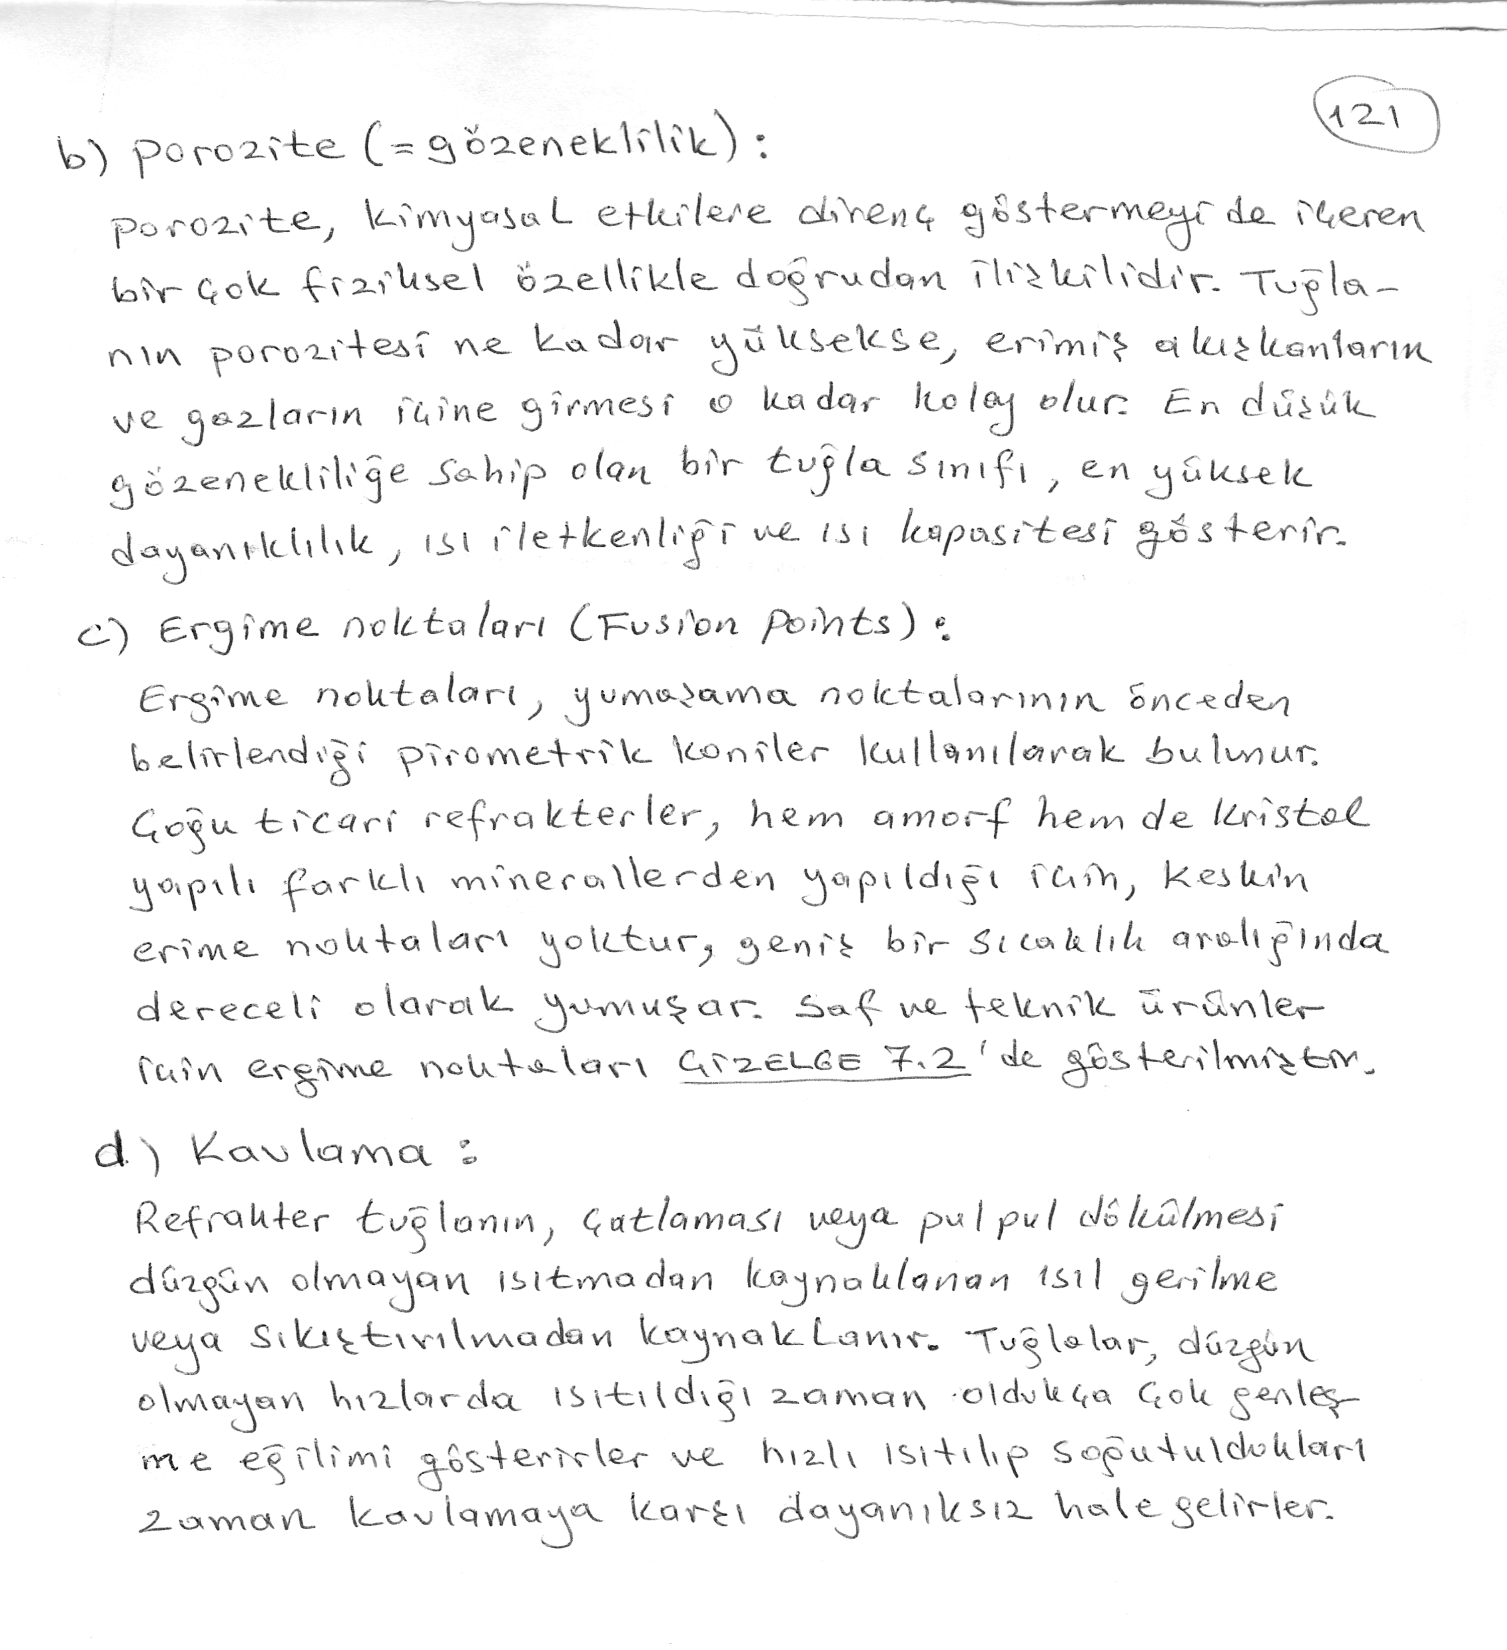 121
b) Porozite (= gözeneklilik) :
Porozite, kimyasal etkilere direnç göstermeyi de içeren
bir çok fiziksel özellikle doğrudan ilişkilidir. Tuğla-
nın porozitesi ne kadar yüksekse, erimiş akışkanların
ve gazların içine girmesi o kadar kolay olur. En düşük
gözenekliliğe sahip olan bir tuğla sınıfı, en yüksek
dayanıklılık, ısı iletkenliği ve ısı kapasitesi gösterir.
c) Ergime noktaları (Fusion Points) :
Ergime noktaları, yumaşama noktalarının önceden
belirlendiği pirometrik koniler kullanılarak bulunur.
Çoğu ticari refrakterler, hem amorf hem de kristal
yapılı farklı minerallerden yapıldığı için, keskin
erime noktaları yoktur, geniş bir sıcaklık aralığında
dereceli olarak yumuşar. Saf ve teknik ürünler
için ergime noktaları ÇİZELGE 7.2'de gösterilmiştir.
d) Kavlama :
Refrakter tuğlanın, çatlaması veya pul pul dökülmesi
düzgün olmayan ısıtmadan kaynaklanan ısıl gerilme
veya sıkıştırılmadan kaynaklanır. Tuğlalar, düzgün
olmayan hızlarda ısıtıldığı zaman oldukça çok genleş-
me eğilimi gösterirler ve hızlı ısıtılıp soğutuldukları
zaman kavlamaya karşı dayanıksız hale gelirler.